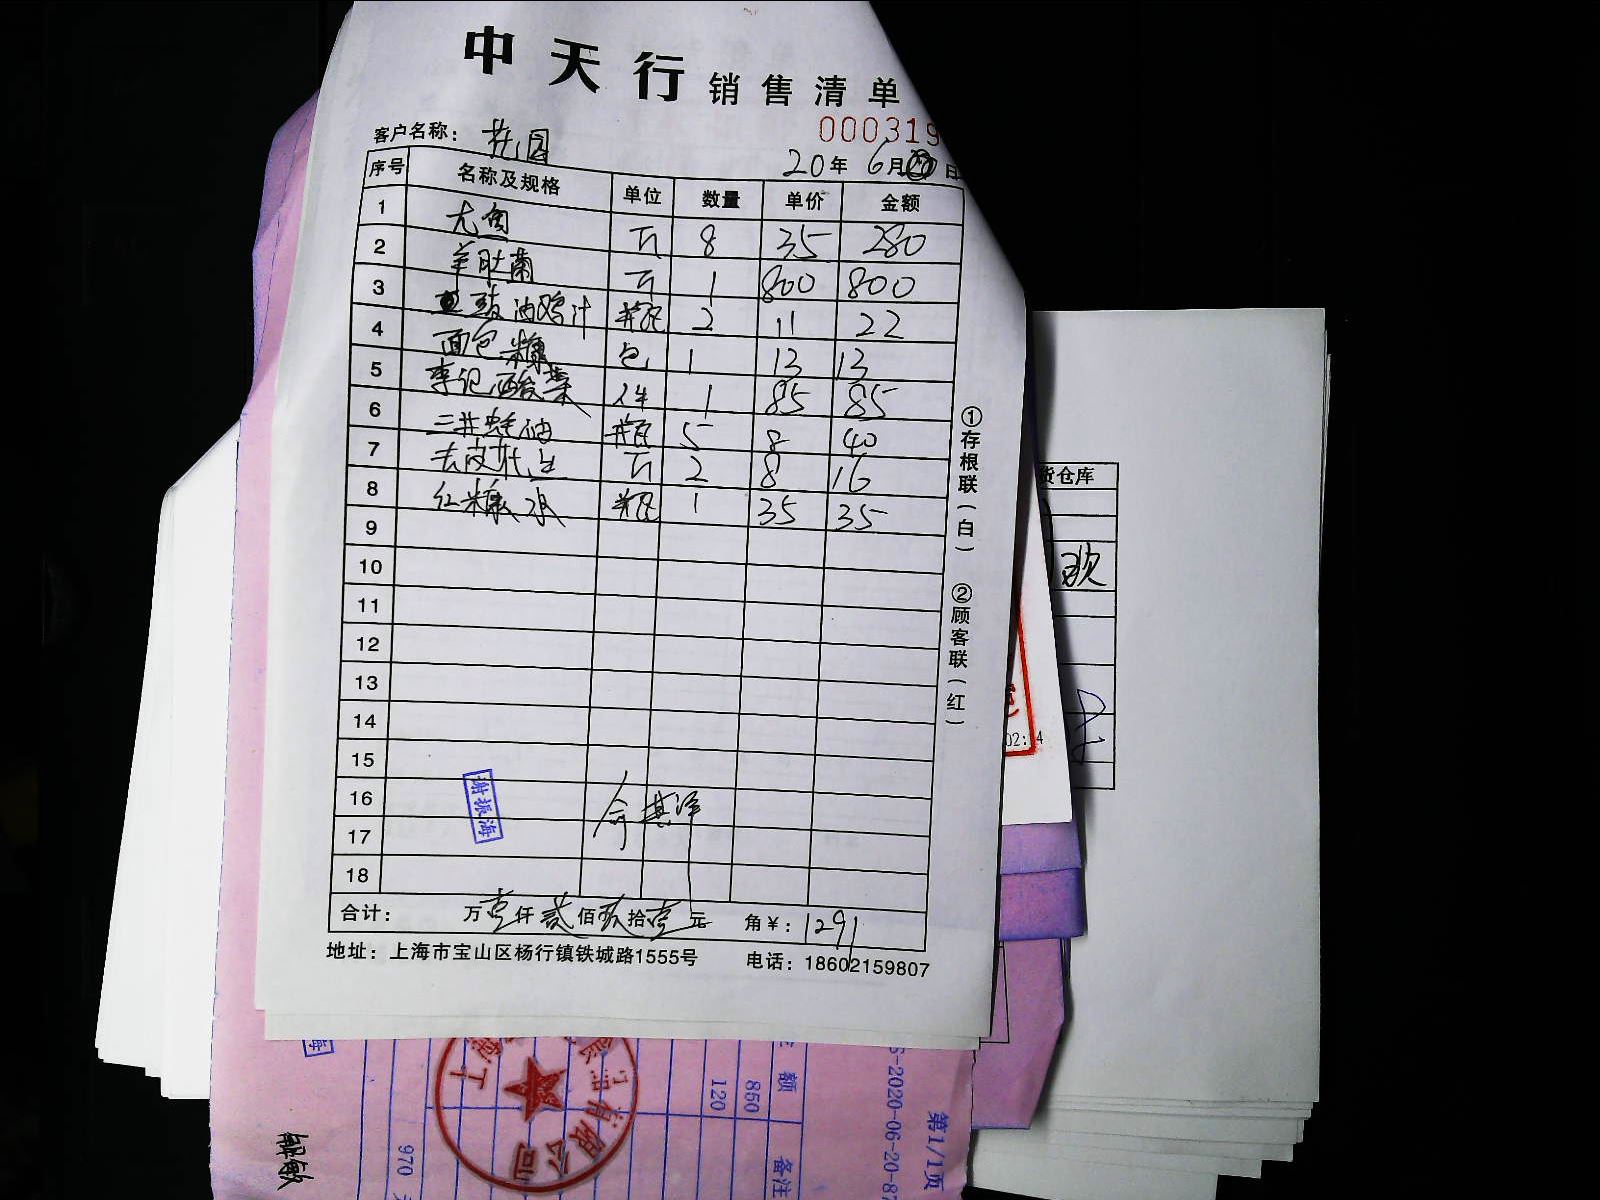 中天行 销售清单
000319
客户名称： 花园
20年 6月 日
序号 名称及规格 单位 数量 单价 金额
1 尤鱼 斤 8 35 280
2 羊肚菌 斤 1 800 800
3 豉油鸡汁 瓶 2 11 22
4 面包糠 包 1 13 13
5 李记酸菜 件 1 85 85
6 三井蚝油 瓶 5 8 40
7 去皮花生 斤 2 8 16
8 红糠水 瓶 1 35 35
9
10
11
12
13
14
15
16
17
18
谢振海
俞其泽
合计： 万壹仟贰佰玖拾壹元 角￥：1291
地址：上海市宝山区杨行镇铁城路1555号 电话：18602159807
①存根联（白） ②顾客联（红）
货仓库
欧
02:4
海
额
850
120
970
备注
第1/1页
-2020-06-20-87
有限公司
敏